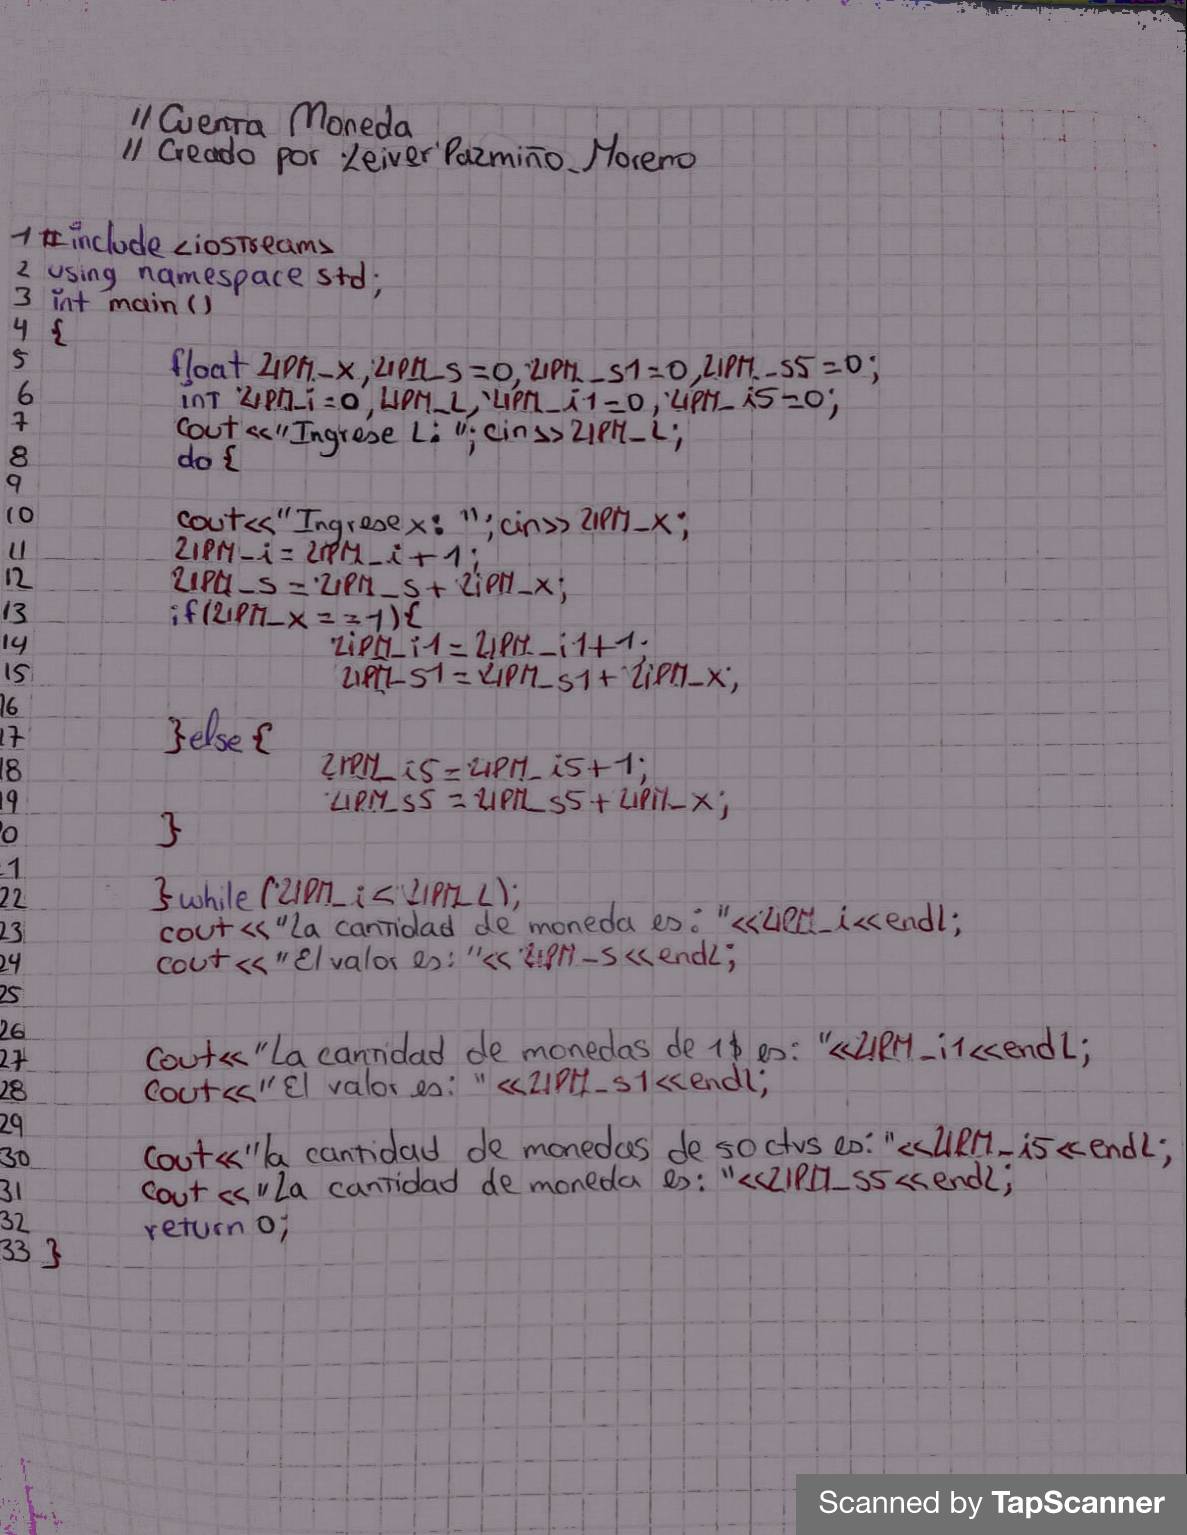 // Cuenta Moneda
// Creado por Leiver Pazmiño_Moreno
1 #include <iostream>
2 using namespace std;
3 int main()
4 {
5 float LIPM_x, LIPM_s=0, LIPM_s1=0, LIPM_s5=0;
6 int LIPM_i=0, LIPM_L, LIPM_i1=0, LIPM_i5=0;
7 cout<<"Ingrese L: ";cin>>LIPM_L;
8 do {
9
10 cout<<"Ingrese x: ";cin>>LIPM_x;
11 LIPM_i=LIPM_i+1;
12 LIPM_s=LIPM_s+LIPM_x;
13 if(LIPM_x==1){
14 LIPM_i1=LIPM_i1+1;
15 LIPM_s1=LIPM_s1+LIPM_x;
16
17 }else{
18 LIPM_i5=LIPM_i5+1;
19 LIPM_s5=LIPM_s5+LIPM_x;
0 }
1
22 }while(LIPM_i<LIPM_L);
23 cout<<"La cantidad de moneda es: "<<LIPM_i<<endl;
24 cout<<"El valor es: "<<LIPM_s<<endl;
25
26
27 cout<<"La cantidad de monedas de 1$ es: "<<LIPM_i1<<endl;
28 cout<<"El valor es: "<<LIPM_s1<<endl;
29
30 cout<<"la cantidad de monedas de 50 ctvs es: "<<LIPM_i5<<endl;
31 cout<<"La cantidad de moneda es: "<<LIPM_s5<<endl;
32 return 0;
33 }
Scanned by TapScanner